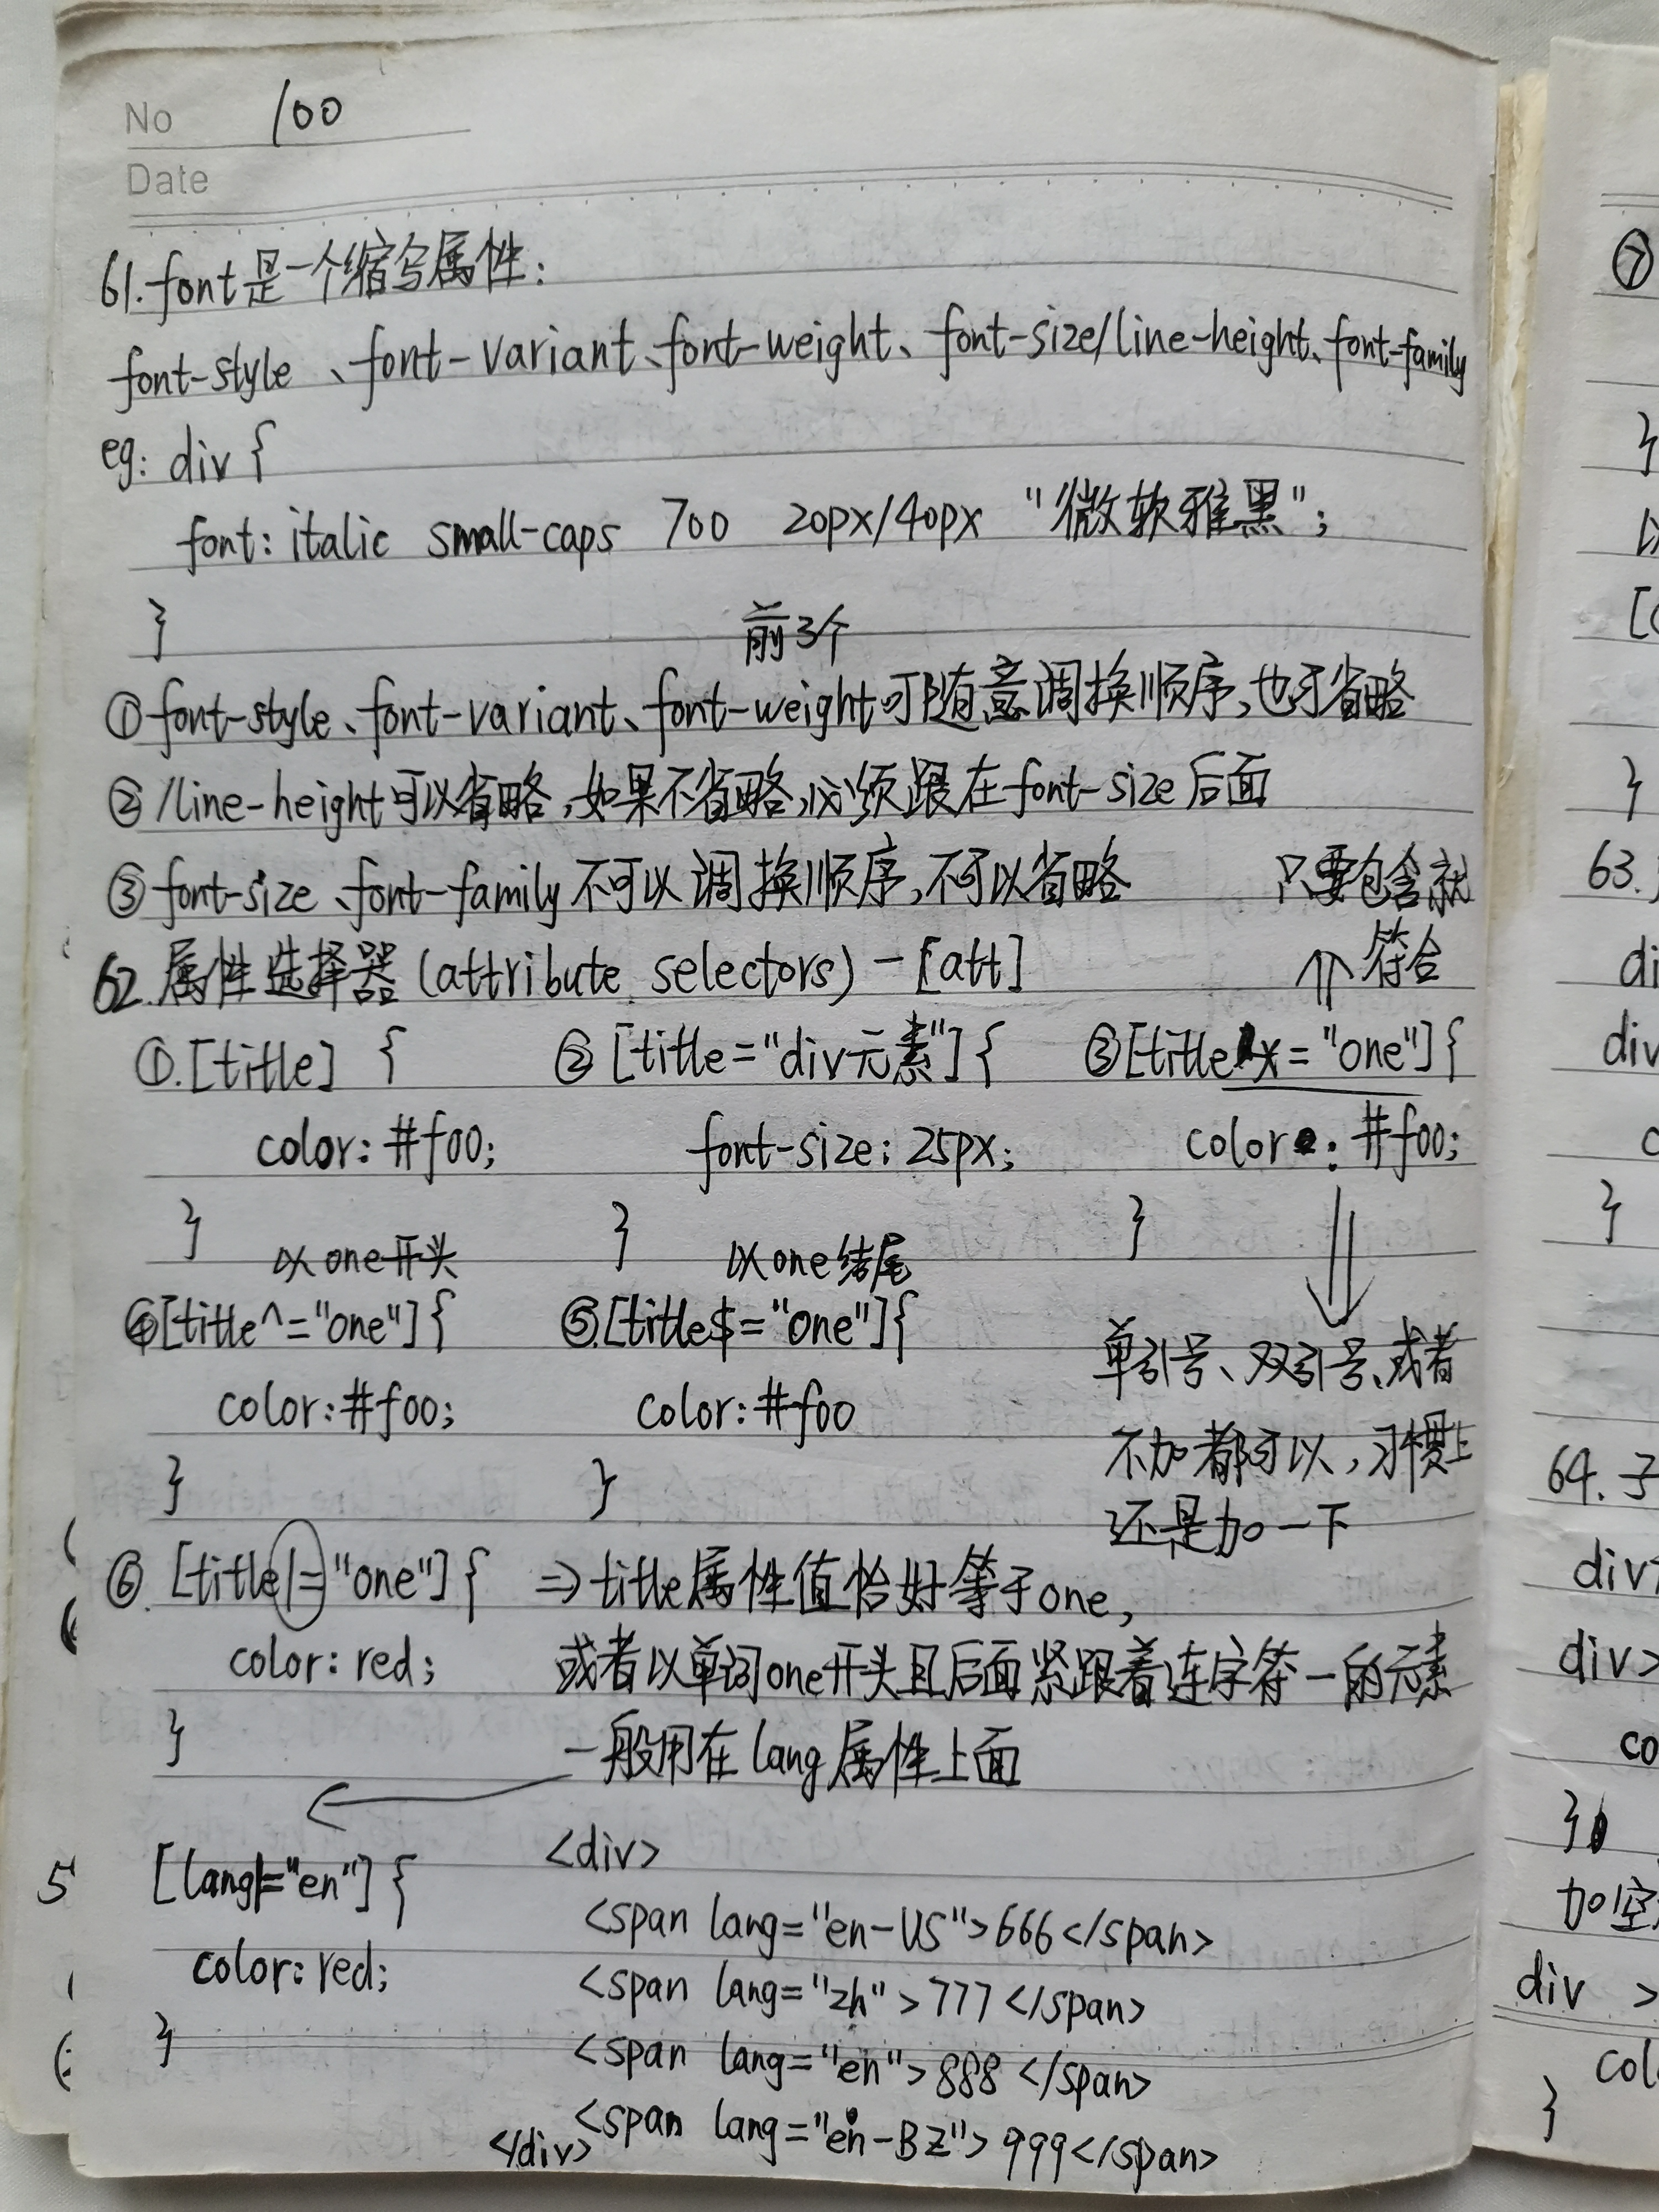 No 100
Date
61.font是一个缩写属性:
font-style、font-variant、font-weight、font-size/line-height、font-family
eg: div {
font: italic small-caps 700 20px/40px "微软雅黑";
}
前3个
①font-style、font-variant、font-weight可随意调换顺序,也可省略
②/line-height可以省略,如果不省略,必须跟在font-size后面
③font-size、font-family不可以调换顺序,不可以省略
只要包含就
符合
62.属性选择器(attribute selectors)-[att]
①.[title] { ②[title="div元素"]{ ③[title*="one"]{
color: #f00; font-size: 25px; color: #f00;
} } }
以one开头 以one结尾
④[title^="one"]{ ⑤.[title$="one"]{
color:#f00; color:#f00
} }
单引号、双引号、或者
不加都可以,习惯上
还是加一下
⑥.[title|="one"]{ ⇒title属性值恰好等于one,
color: red; 或者以单词one开头且后面紧跟着连字符-的元素
} 一般用在lang属性上面
[lang|="en"]{
color: red;
}
<div>
<span lang="en-US">666</span>
<span lang="zh">777</span>
<span lang="en">888</span>
<span lang="en-BZ">999</span>
</div>
5
⑦
}
}
63.
di
div
}
64.子
div
div>
co
}
加空
div >
col
}